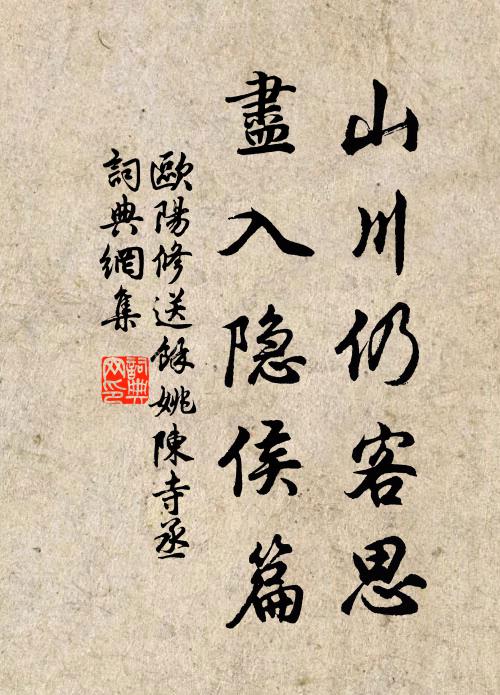 山川仍客思
盡入隐侯篇
歐陽修送餘姚陳寺丞
詞典網集
詞典
网印